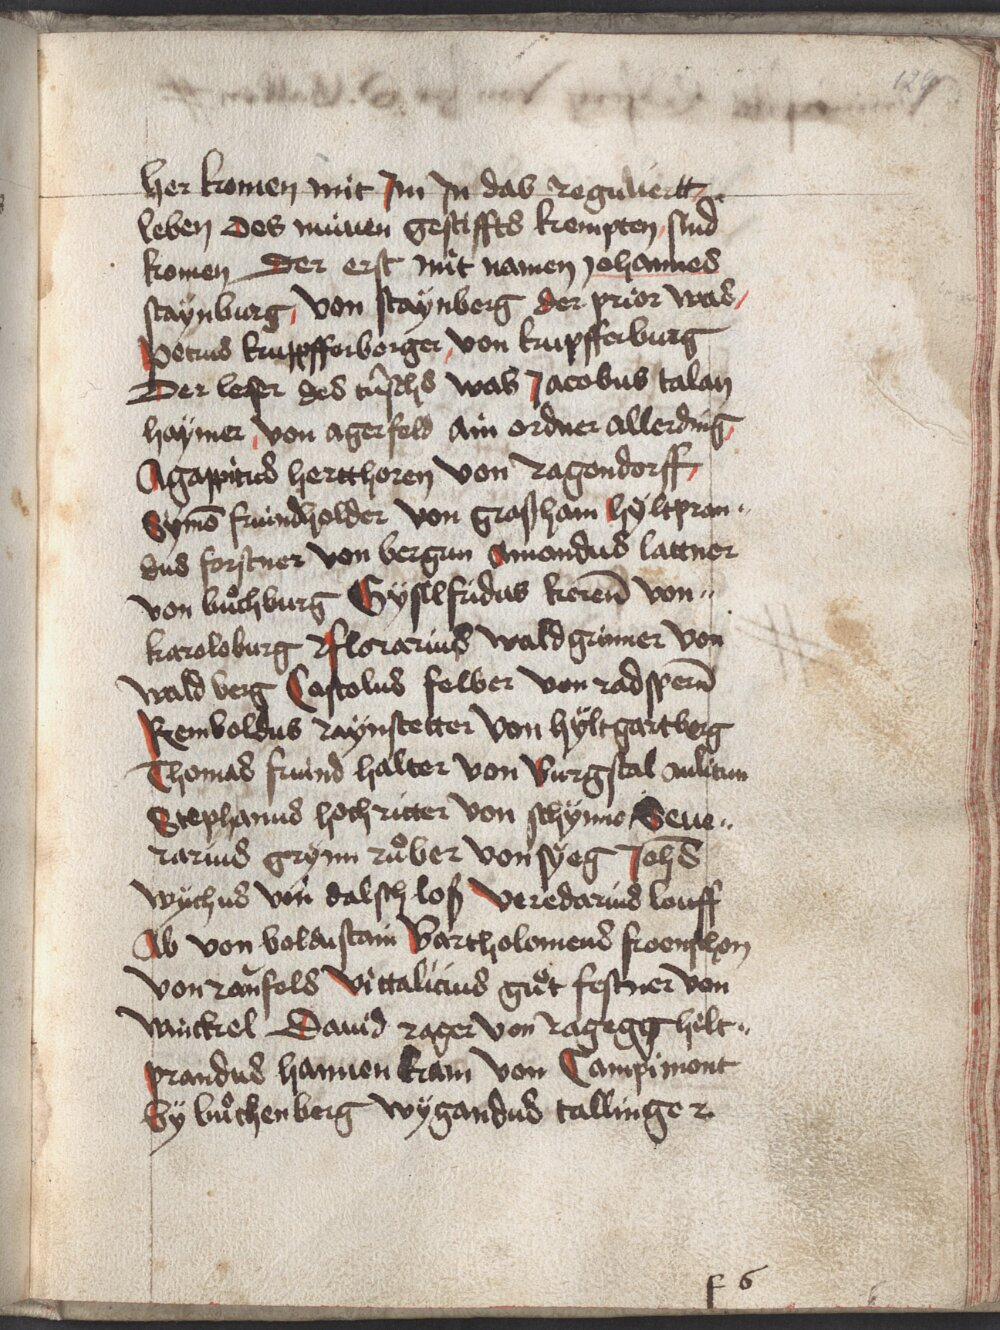 129
her komen mit Im In das reguliertt
leben des nüwen gestiffts kempten sind
komen Der erst mit namen Johannes
staynburg von staynberg der prior was
Petrus krupfferberger von krupfferburg
Der leser des tuͤschs was Jacobus talan
haymer von agerfeld Ain ordner allerding
Agappitus hertthoren von ragendorff
Symō frundholder von graßham hyltpran
dus forstner von bergun Amondus lattner
von buͦchburg Gysilfridus kerenn̄ von
karoloburg florarius waldgrinner von
wald berg Castolus felber von radspern̄
Remboldus raynstetter von hyltgartberg
Thomas frund halter von burgstal militum
Stephanus hochritter von schynne Seue
rarius grynn ruͦber von syeg Johs̄
wychus von dalschloß veredarius louff
Ab von boldustain Bartholomeus
von ranfels vittalicius guͦt festner von
winckel Dauid rager von ragegg hilt
prandus hannenkam von Campimont
by buͦchenberg wygandus tallinger
f 6